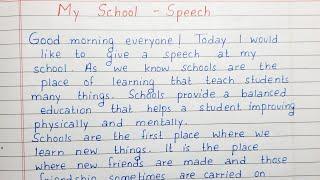 My School - Speech
Good morning everyone! Today I would
like to give a speech at my
school. As we know schools are the
place of learning that teach students
many things. Schools provide a balanced
education that helps a student improving
physically and mentally.
Schools are the first place where we
learn new things. It is the place
where new friends are made and those
friendship sometimes are carried on